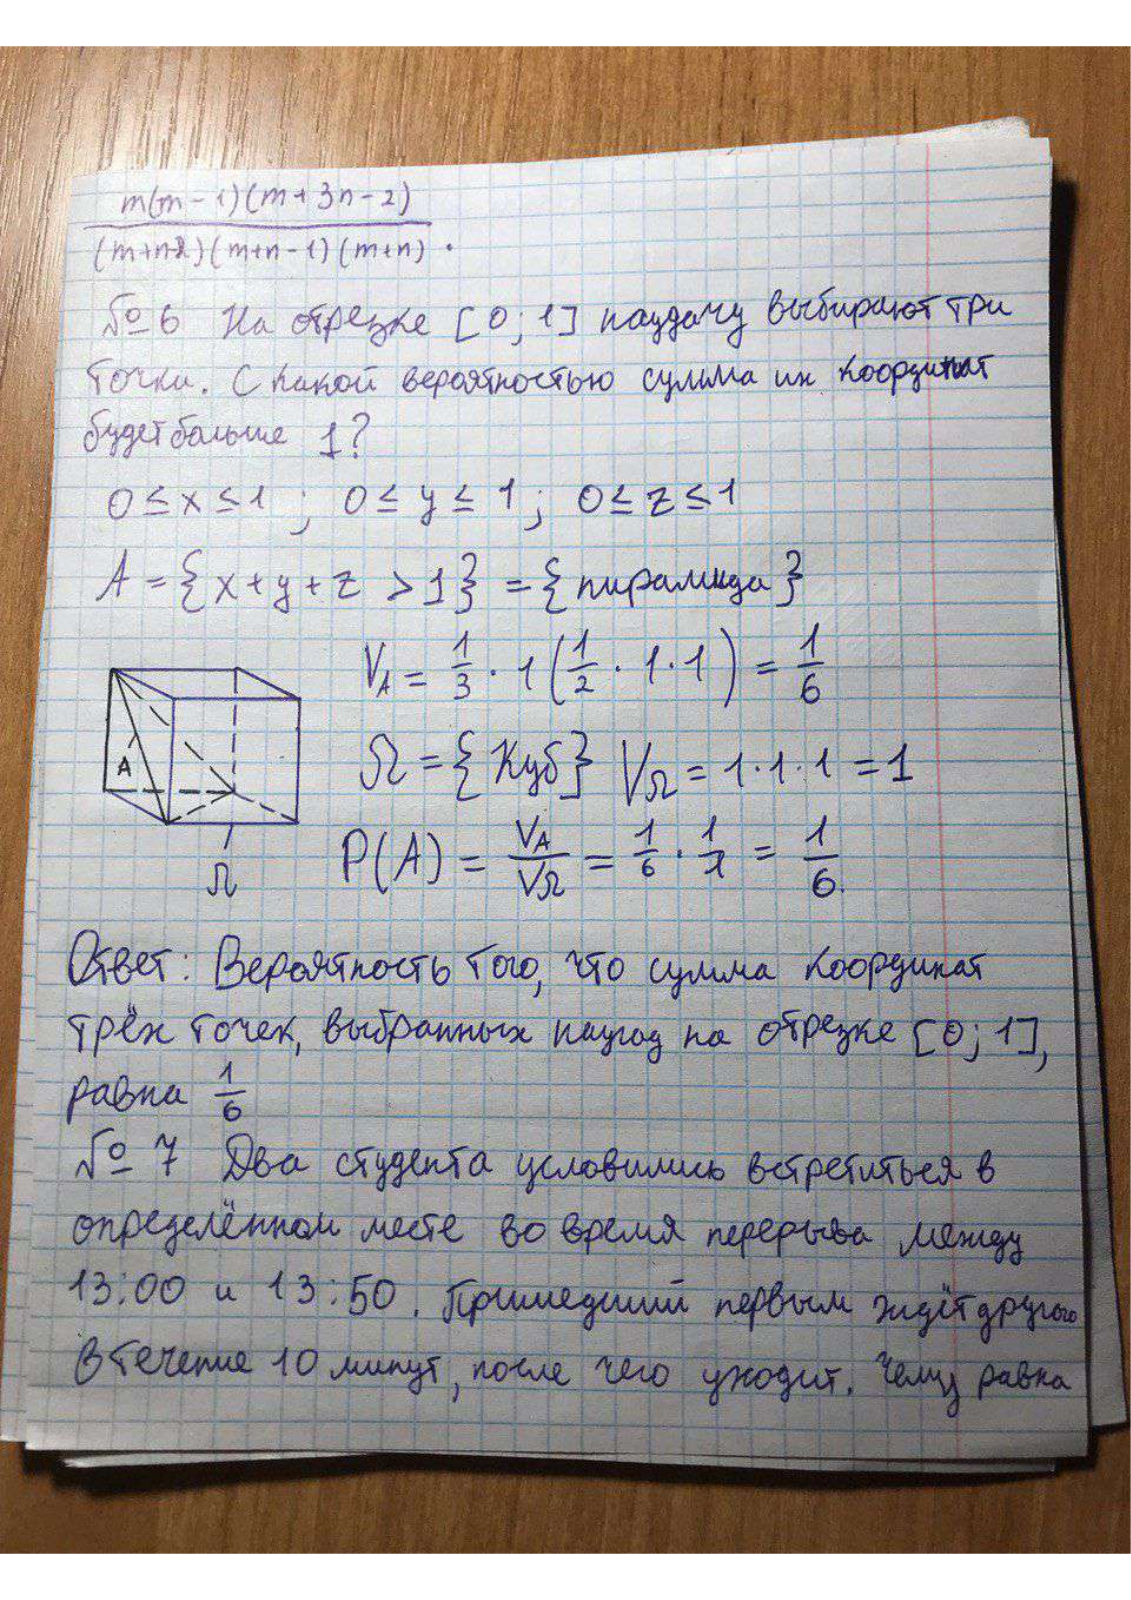 m(m-1)(m+3n-2)
(m+n-2)(m+n-1)(m+n) .
№6 На отрезке [0; 1] наудачу выбирают три
точки. С какой вероятностью сумма их координат
будет больше 1?
0 ≤ x ≤ 1 ; 0 ≤ y ≤ 1; 0 ≤ z ≤ 1
A = {x+y+z > 1} = {пирамида}
V_A = 1/3 · 1 (1/2 · 1 · 1) = 1/6
Ω = {Куб} V_Ω = 1·1·1 = 1
A
P(A) = V_A/V_Ω = 1/6 · 1/1 = 1/6.
Ω
Ответ: Вероятность того, что сумма координат
трёх точек, выбранных наугад на отрезке [0; 1],
равна 1/6
№ 7 Два студента условились встретиться в
определённом месте во время перерыва между
13:00 и 13:50. Пришедший первым ждёт другого
в течение 10 минут, после чего уходит. Чему равна